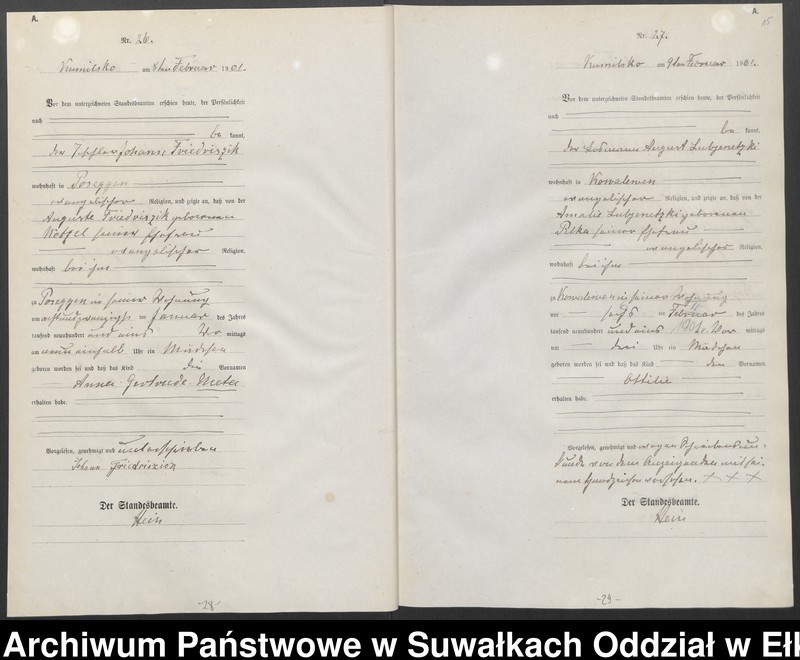 A.
Nr. 26.
Kumilsko am 8ten Februar 1901.
Vor dem unterzeichneten Standesbeamten erschien heute, der Persönlichkeit
nach
be kannt,
der Johann Friedriszik
wohnhaft in Poseggen
evangelischer Religion, und zeigte an, daß von der
Auguste Friedriszik geborenen
seiner Ehefrau
evangelischer Religion,
wohnhaft bei ihm
zu Poseggen in seiner Wohnung
am achtundzwanzigsten Januar des Jahres
tausend neunhundert und eins Vor mittags
um neun einhalb Uhr ein Mädchen
geboren worden sei und daß das Kind die Vornamen
Anna Gertrude Meta
erhalten habe.
Vorgelesen, genehmigt und unterschrieben
Johann
Der Standesbeamte.
Hein
-28-
A.
15
Nr. 27.
Kumilsko am 9ten Februar 1901.
Vor dem unterzeichneten Standesbeamten erschien heute, der Persönlichkeit
nach
be kannt,
der Losmann August Lubjenetzki
wohnhaft in Kowalewen
evangelischer Religion, und zeigte an, daß von der
Amalie Lubjenetzki geborenen
seiner Ehefrau
evangelischer Religion,
wohnhaft bei ihm
zu Kowalewen in seiner Wohnung
am sechs ten Februar des Jahres
tausend neunhundert und eins Vor mittags
um drei Uhr ein Mädchen
geboren worden sei und daß das Kind den Vornamen
Ottilie
erhalten habe.
Vorgelesen, genehmigt und wegen Schreibensun-
kunde von dem Anzeigenden mit sei-
nem Handzeichen versehen. + + +
Der Standesbeamte.
Hein
-29-
Archiwum Państwowe w Suwałkach Oddział w Ełk